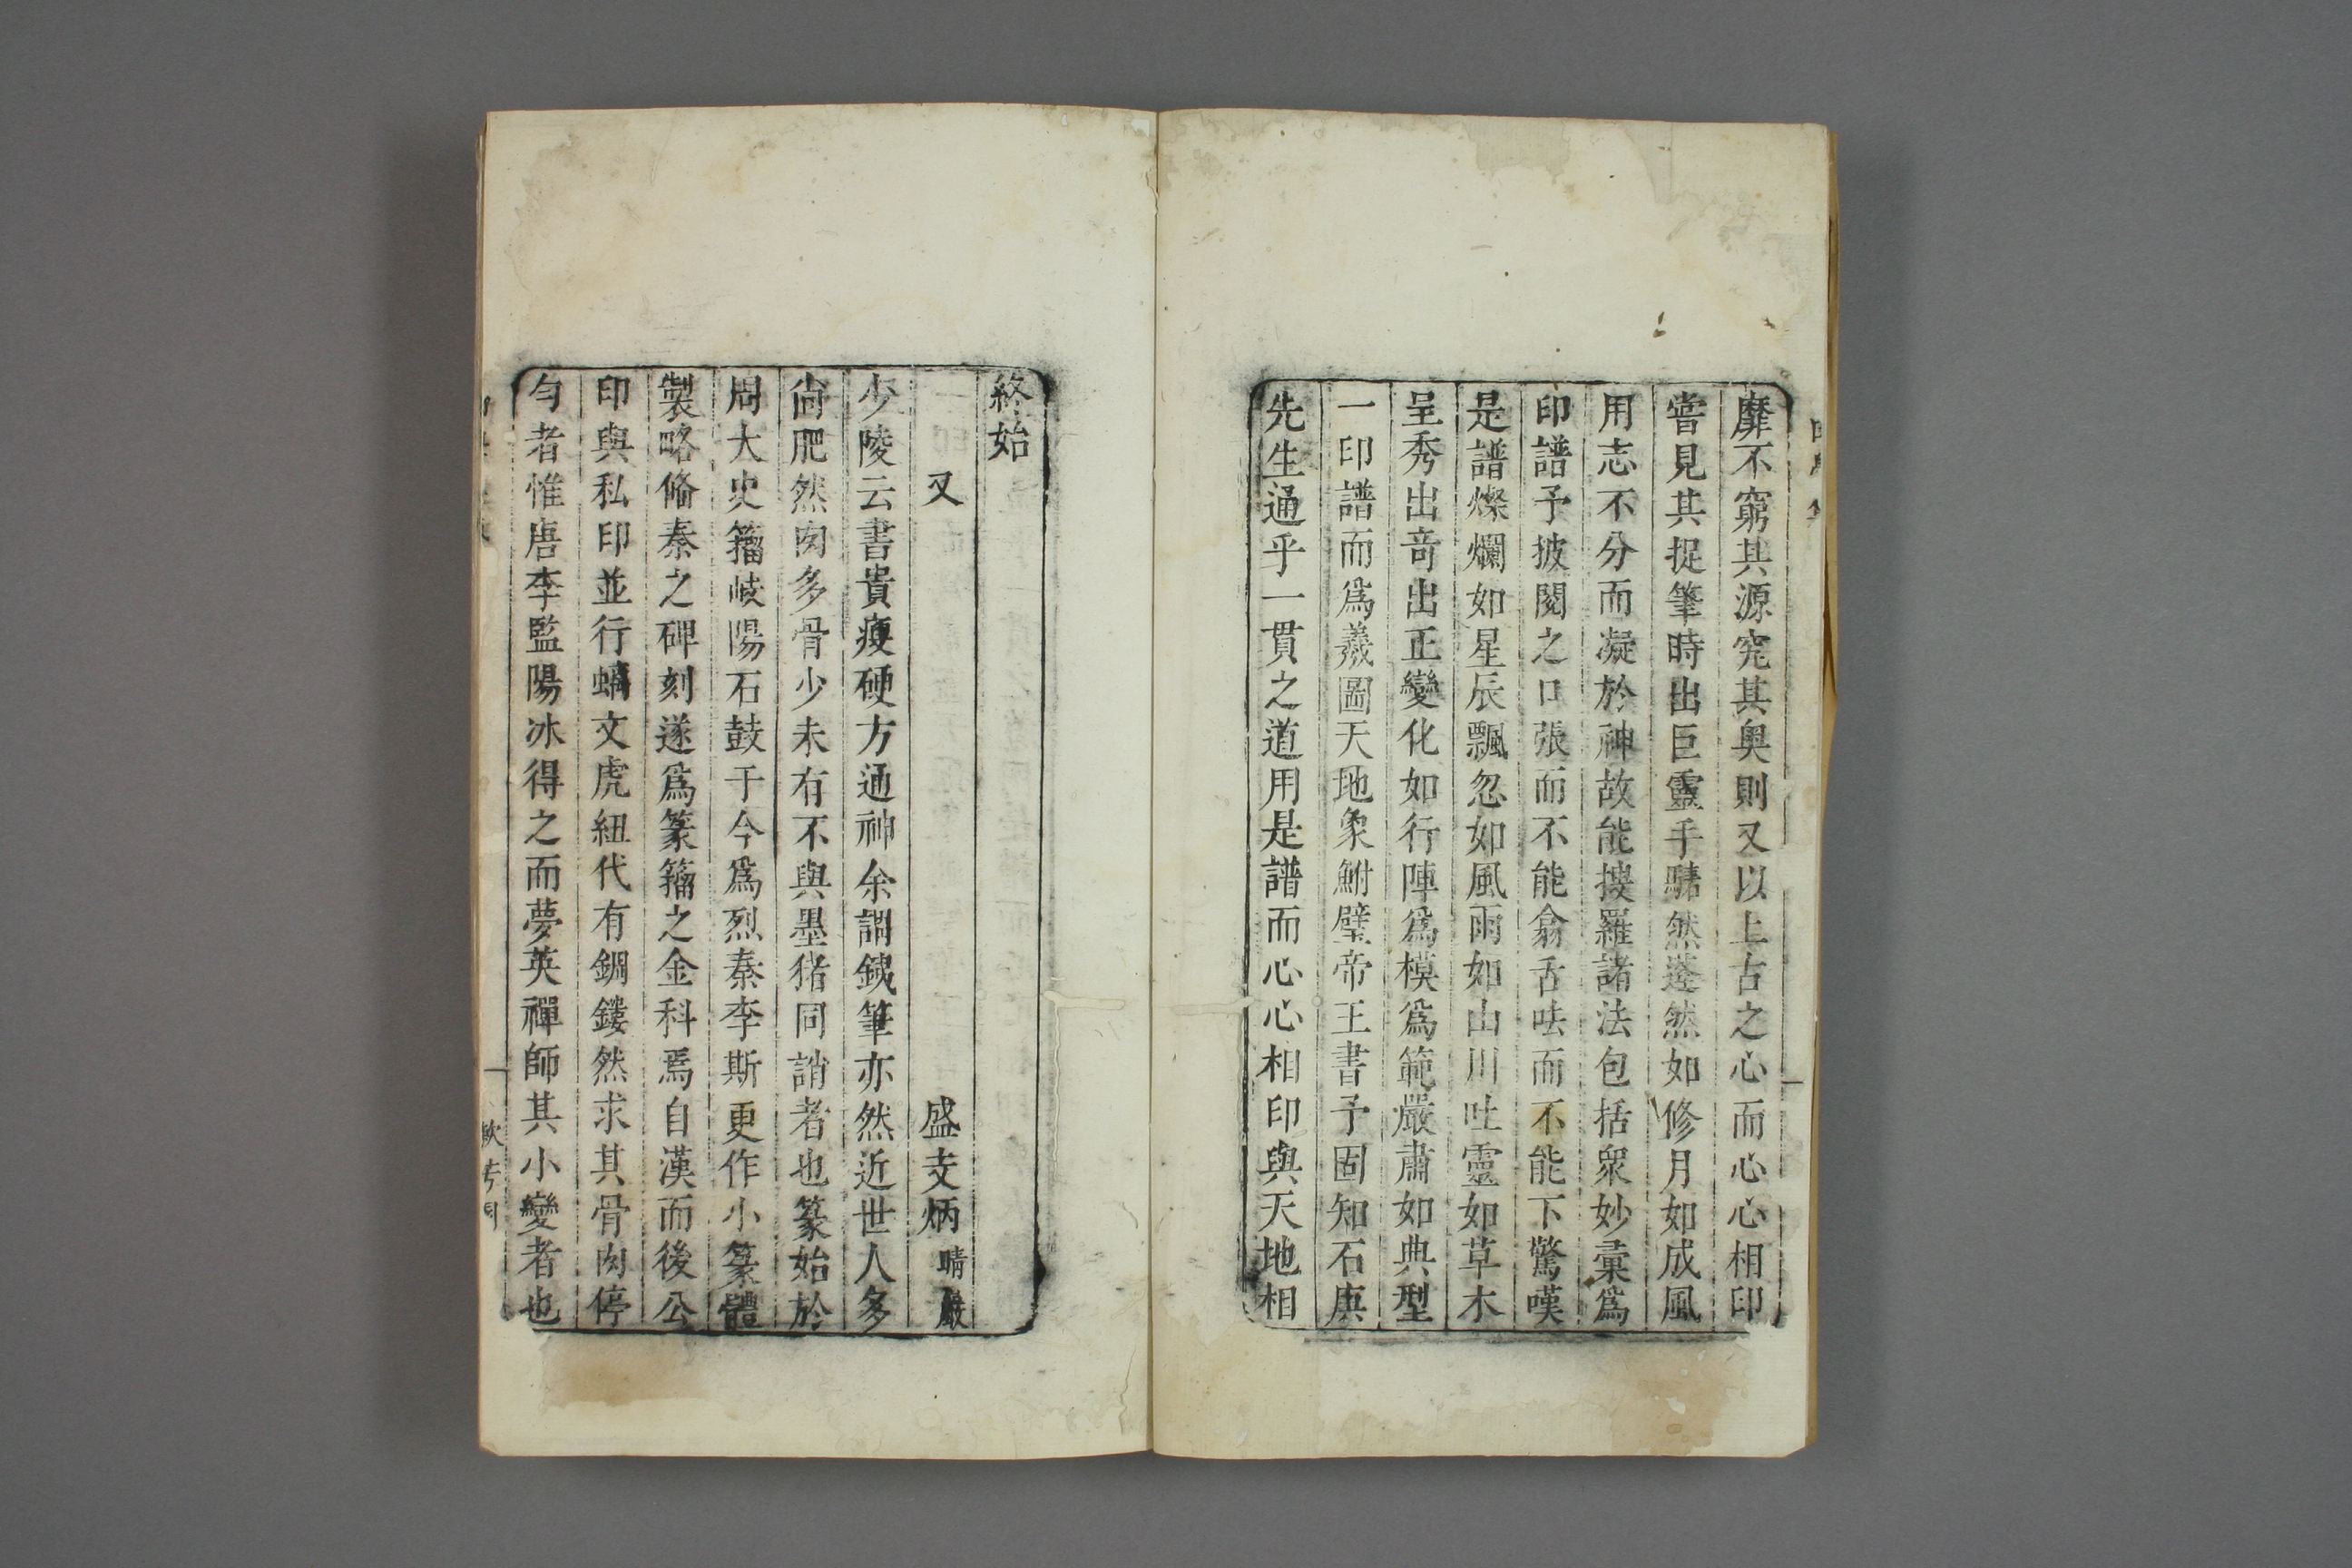 靡不窮其源究其奥則又以上古之心而心心相印
嘗見其捉筆時出巨靈手騞然蓬然如修月如成風
用志不分而凝於神故能搜羅諸法包括衆妙彙爲
印譜予披閱之口張而不能翕舌呿而不能下驚嘆
是譜燦爛如星辰飄忽如風雨如山川吐靈如草木
呈秀出竒出正變化如行陣爲模爲範嚴肅如典型
一印譜而爲羲圖天地象鮒璧帝王書予固知石庚
先生通乎一貫之道用是譜而心心相印與天地相
終始
又 盛支炳晴巖
少陵云書貴瘦硬方通神余謂鐵筆亦然近世人多
尙肥然肉多骨少未有不與墨猪同誚者也篆始於
周大史籀岐陽石鼓于今爲烈秦李斯更作小篆體
製略脩秦之碑刻遂爲篆籀之金科焉自漢而後公
印與私印並行螭文虎紐代有鐫鏤然求其骨肉停
勻者惟唐李監陽冰得之而夢英禪師其小變者也